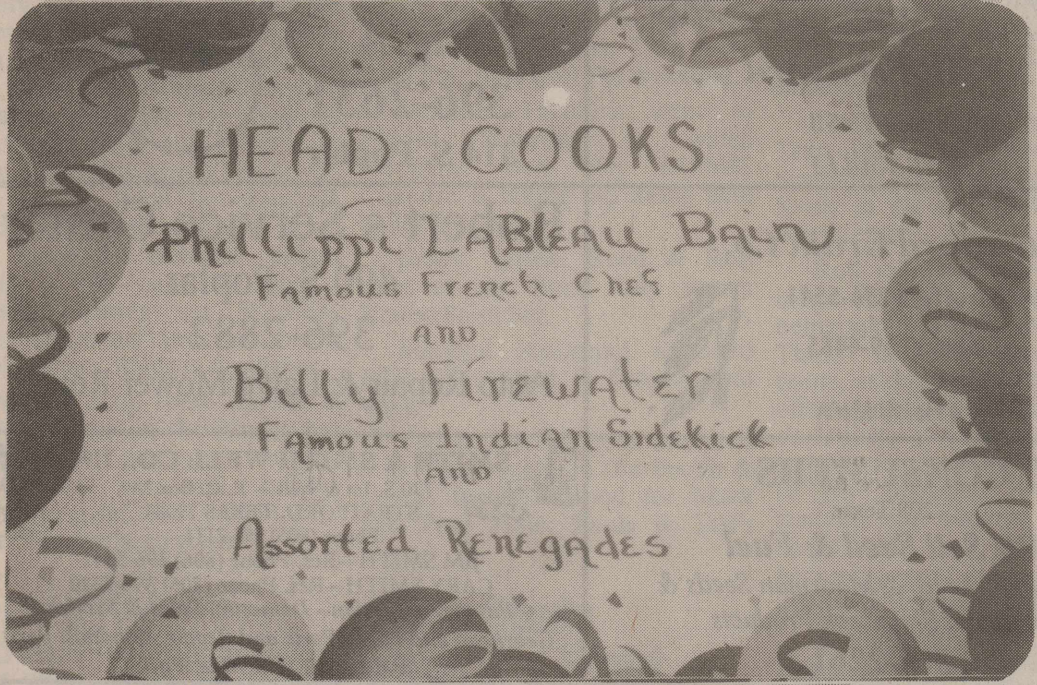 HEAD COOKS
Phillippi LABleau Bain
Famous French Chef
AND
Billy Firewater
Famous Indian Sidekick
AND
Assorted Renegades